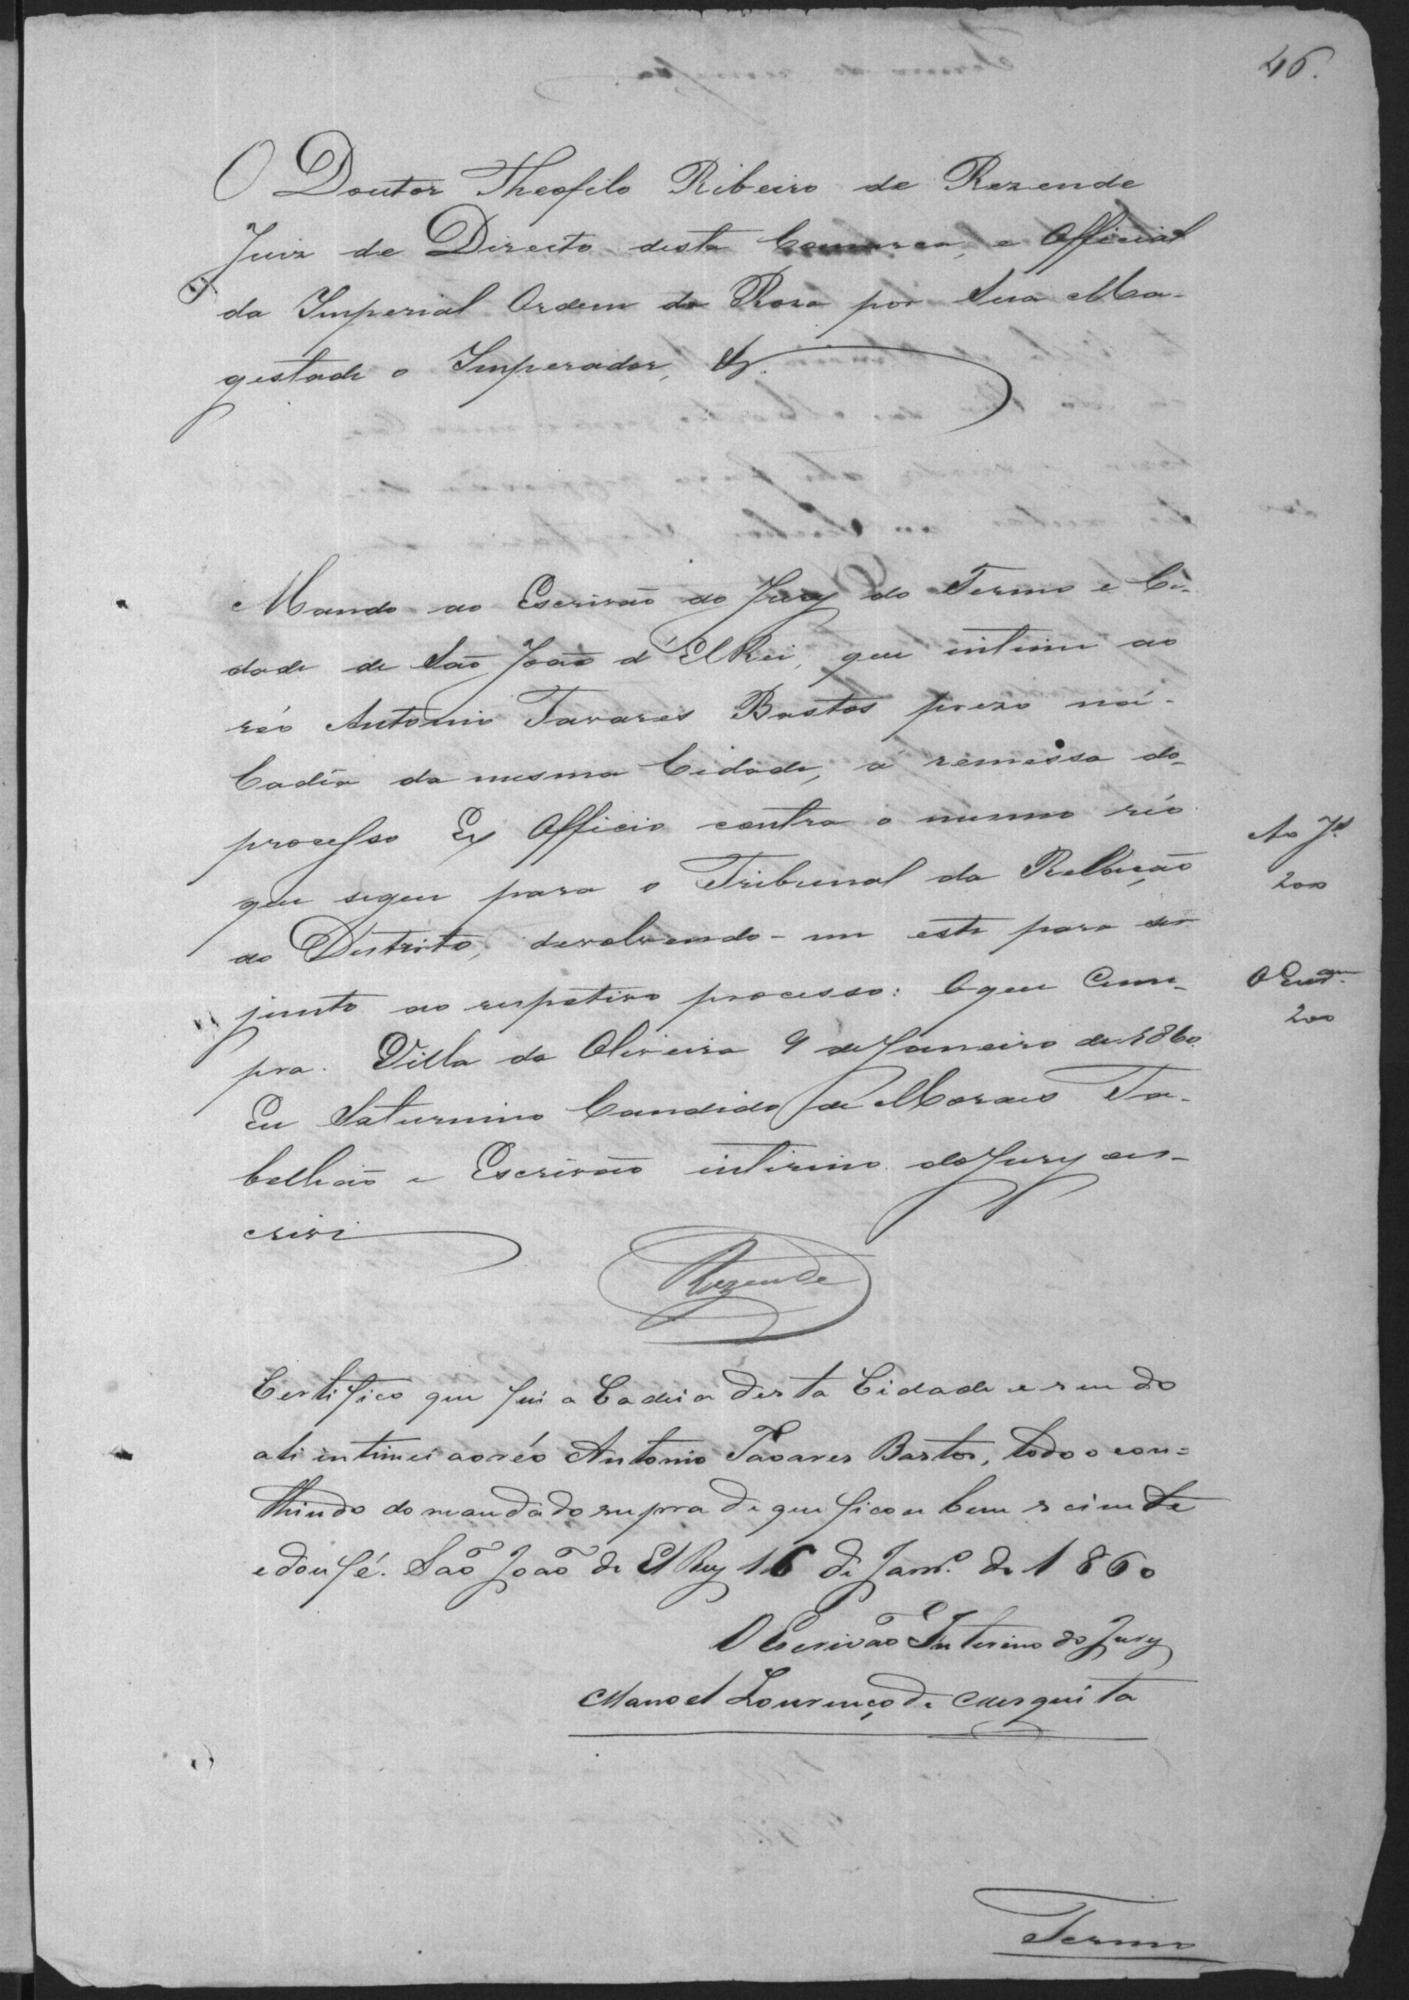 46.
O Doutor Theofilo Ribeiro de Rezende
Juiz de Direito desta Comarca, e Official
da Imperial Ordem da Rosa por Sua Ma-
gestade o Imperador, &.
Mando ao Escrivão do Jury do Termo e Ci-
dade de São João d'El Rei, que intime ao
réo Antonio Tavares Bastos prezo na
Cadêa da mesma Cidade, a remessa do
processo Ex Officio contra o mesmo réo
que segue para o Tribunal da Relação
do Distrito, devolvendo-me este para ser
junto ao respetivo processo: O que Cum-
pra. Villa da Oliveira 9 de Janeiro de 1860.
Eu Saturnino Candido de Moraes Ta-
belliaõ e Escrivaõ interino do Jury es-
crivi
Ao Jz.
200
O Escr.am
200
Rezende
Certifico que fui a Cadeia desta Cidade e sendo
ahi intimei ao réo Antonio Tavares Bastos, todo o con=
thiudo do mandado supra de que ficou bem sciente
e dou fé. Saõ Joaõ de El Rey 16 de Janr.o de 1860
O Escrivaõ Interino do Jury
Manoel Lourenço de Mesquita
Termo